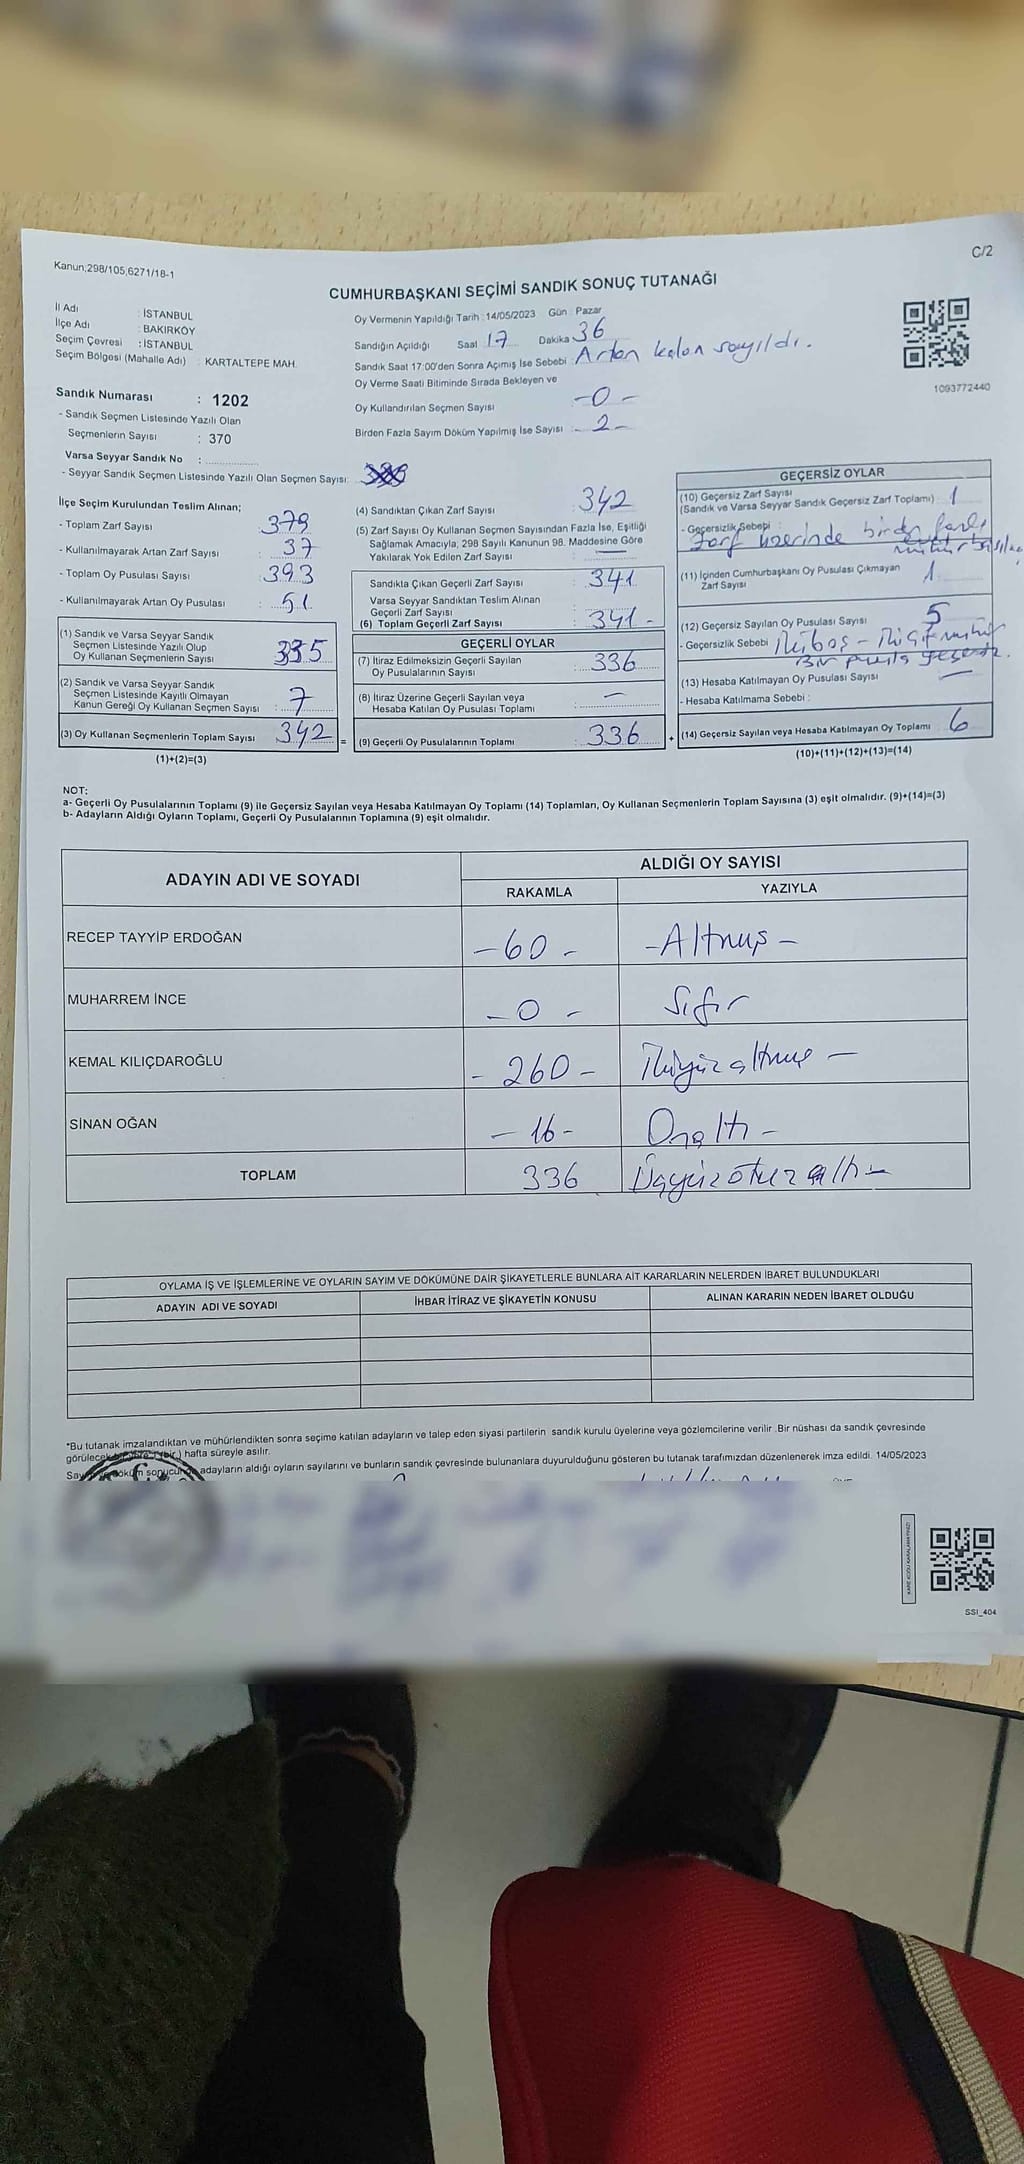 Kanun;298/105,6271/18-1
C/2
CUMHURBAŞKANI SEÇİMİ SANDIK SONUÇ TUTANAĞI
İl Adı : İSTANBUL
İlçe Adı : BAKIRKÖY
Seçim Çevresi : İSTANBUL
Seçim Bölgesi (Mahalle Adı) : KARTALTEPE MAH.
Oy Vermenin Yapıldığı Tarih : 14/05/2023 Gün : Pazar
Sandığın Açıldığı Saat 17 Dakika 36
Sandık Saat 17:00'den Sonra Açımış İse Sebebi : Artan kalan sayıldı.
Oy Verme Saati Bitiminde Sırada Bekleyen ve
Oy Kullandırılan Seçmen Sayısı -0-
Birden Fazla Sayım Döküm Yapılmış İse Sayısı : -2-
1093772440
Sandık Numarası : 1202
- Sandık Seçmen Listesinde Yazılı Olan
Seçmenlerin Sayısı : 370
Varsa Seyyar Sandık No :
- Seyyar Sandık Seçmen Listesinde Yazılı Olan Seçmen Sayısı:
İlçe Seçim Kurulundan Teslim Alınan;
- Toplam Zarf Sayısı : 379
- Kullanılmayarak Artan Zarf Sayısı : 37
- Toplam Oy Pusulası Sayısı : 393
- Kullanılmayarak Artan Oy Pusulası : 51
(1) Sandık ve Varsa Seyyar Sandık
Seçmen Listesinde Yazılı Olup
Oy Kullanan Seçmenlerin Sayısı : 335
(2) Sandık ve Varsa Seyyar Sandık
Seçmen Listesinde Kayıtlı Olmayan
Kanun Gereği Oy Kullanan Seçmen Sayısı : 7
(3) Oy Kullanan Seçmenlerin Toplam Sayısı : 342 =
(1)+(2)=(3)
(4) Sandıktan Çıkan Zarf Sayısı : 342
(5) Zarf Sayısı Oy Kullanan Seçmen Sayısından Fazla İse, Eşitliği
Sağlamak Amacıyla; 298 Sayılı Kanunun 98. Maddesine Göre
Yakılarak Yok Edilen Zarf Sayısı : —
Sandıkta Çıkan Geçerli Zarf Sayısı : 341
Varsa Seyyar Sandıktan Teslim Alınan
Geçerli Zarf Sayısı
(6) Toplam Geçerli Zarf Sayısı : 341 -
GEÇERLİ OYLAR
(7) İtiraz Edilmeksizin Geçerli Sayılan
Oy Pusulalarının Sayısı : 336
(8) İtiraz Üzerine Geçerli Sayılan veya
Hesaba Katılan Oy Pusulası Toplamı : —
(9) Geçerli Oy Pusulalarının Toplamı : 336 +
GEÇERSİZ OYLAR
(10) Geçersiz Zarf Sayısı
(Sandık ve Varsa Seyyar Sandık Geçersiz Zarf Toplamı) : 1
- Geçersizlik Sebebi :
Zarf üzerinde birden fazla
(11) İçinden Cumhurbaşkanı Oy Pusulası Çıkmayan
Zarf Sayısı 1
(12) Geçersiz Sayılan Oy Pusulası Sayısı 5
- Geçersizlik Sebebi İki boş - İki çift mühür
(13) Hesaba Katılmayan Oy Pusulası Sayısı —
- Hesaba Katılmama Sebebi :
(14) Geçersiz Sayılan veya Hesaba Katılmayan Oy Toplamı : 6
(10)+(11)+(12)+(13)=(14)
NOT:
a- Geçerli Oy Pusulalarının Toplamı (9) ile Geçersiz Sayılan veya Hesaba Katılmayan Oy Toplamı (14) Toplamları, Oy Kullanan Seçmenlerin Toplam Sayısına (3) eşit olmalıdır. (9)+(14)=(3)
b- Adayların Aldığı Oyların Toplamı, Geçerli Oy Pusulalarının Toplamına (9) eşit olmalıdır.
ADAYIN ADI VE SOYADI
ALDIĞI OY SAYISI
RAKAMLA YAZIYLA
RECEP TAYYİP ERDOĞAN -60- -Altmış-
MUHARREM İNCE -0- Sıfır
KEMAL KILIÇDAROĞLU -260- İkiyüzaltmış -
SİNAN OĞAN -16- Onaltı -
TOPLAM 336 Üçyüzotuzaltı -
OYLAMA İŞ VE İŞLEMLERİNE VE OYLARIN SAYIM VE DÖKÜMÜNE DAİR ŞİKAYETLERLE BUNLARA AİT KARARLARIN NELERDEN İBARET BULUNDUKLARI
ADAYIN ADI VE SOYADI İHBAR İTİRAZ VE ŞİKAYETİN KONUSU ALINAN KARARIN NEDEN İBARET OLDUĞU
*Bu tutanak imzalandıktan ve mühürlendikten sonra seçime katılan adayların ve talep eden siyasi partilerin sandık kurulu üyelerine veya gözlemcilerine verilir. Bir nüshası da sandık çevresinde
görülecek (bir) hafta süreyle asılır.
adayların aldığı oyların sayılarını ve bunların sandık çevresinde bulunanlara duyurulduğunu gösteren bu tutanak tarafımızdan düzenlenerek imza edildi. 14/05/2023
KARE KODU KARALAMAYINIZ!
SSI_404